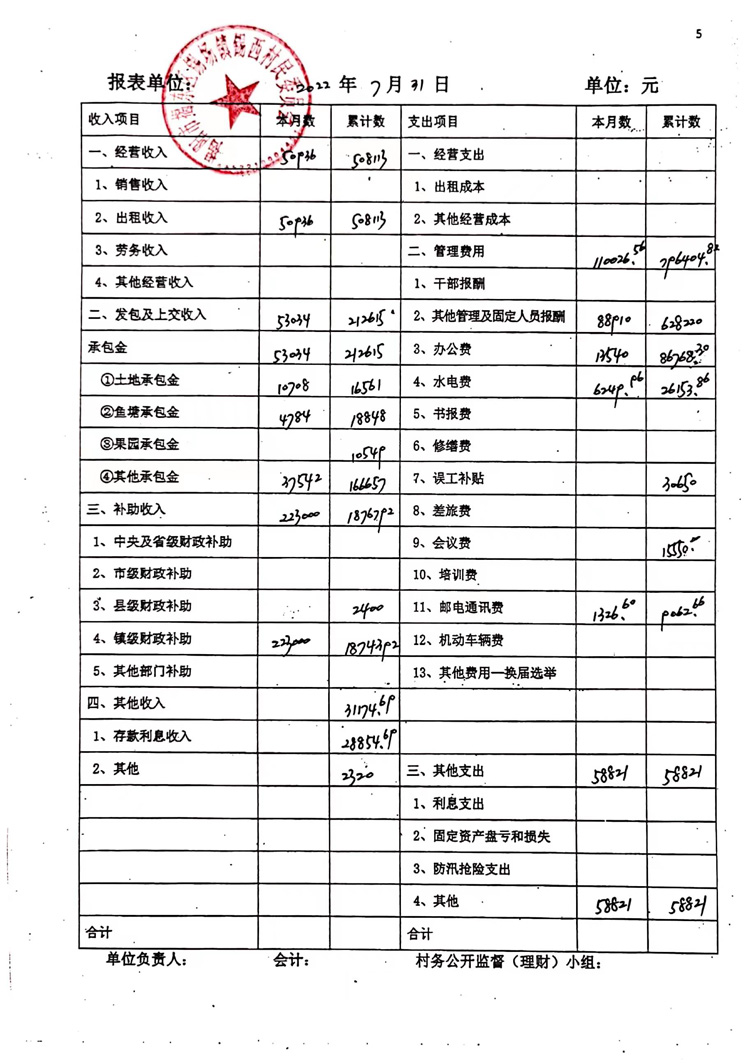 5
报表单位: 2022 年 7 月 31 日 单位: 元
收入项目 本月数 累计数 支出项目 本月数 累计数
一、经营收入 50936 508113 一、经营支出
1、销售收入 1、出租成本
2、出租收入 50936 508113 2、其他经营成本
3、劳务收入 二、管理费用 110026.56 796404.82
4、其他经营收入 1、干部报酬
二、发包及上交收入 53034 212615 2、其他管理及固定人员报酬 88910 628220
承包金 53034 212615 3、办公费 13540 86768.30
①土地承包金 10708 16561 4、水电费 6249.96 26153.86
②鱼塘承包金 4784 18848 5、书报费
③果园承包金 10549 6、修缮费
④其他承包金 37542 166657 7、误工补贴 30650
三、补助收入 223000 1876792 8、差旅费
1、中央及省级财政补助 9、会议费 15550.-
2、市级财政补助 10、培训费
3、县级财政补助 2400 11、邮电通讯费 1326.60 9062.66
4、镇级财政补助 223000 1874392 12、机动车辆费
5、其他部门补助 13、其他费用—换届选举
四、其他收入 31174.69
1、存款利息收入 28854.69
2、其他 2320 三、其他支出 58821 58821
1、利息支出
2、固定资产盘亏和损失
3、防汛抢险支出
4、其他 58821 58821
合计 合计
单位负责人: 会计: 村务公开监督(理财)小组: